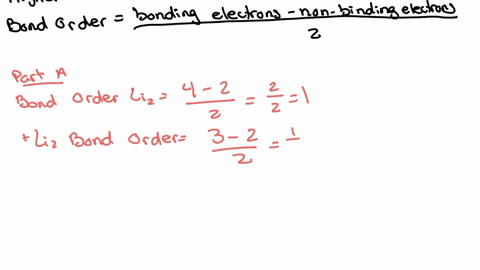 Bond Order = bonding electrons - non-binding electrons / 2
Part A
Bond Order Li₂ = 4 - 2 / 2 = 2 / 2 = 1
+Li₂ Bond Order = 3 - 2 / 2 = 1